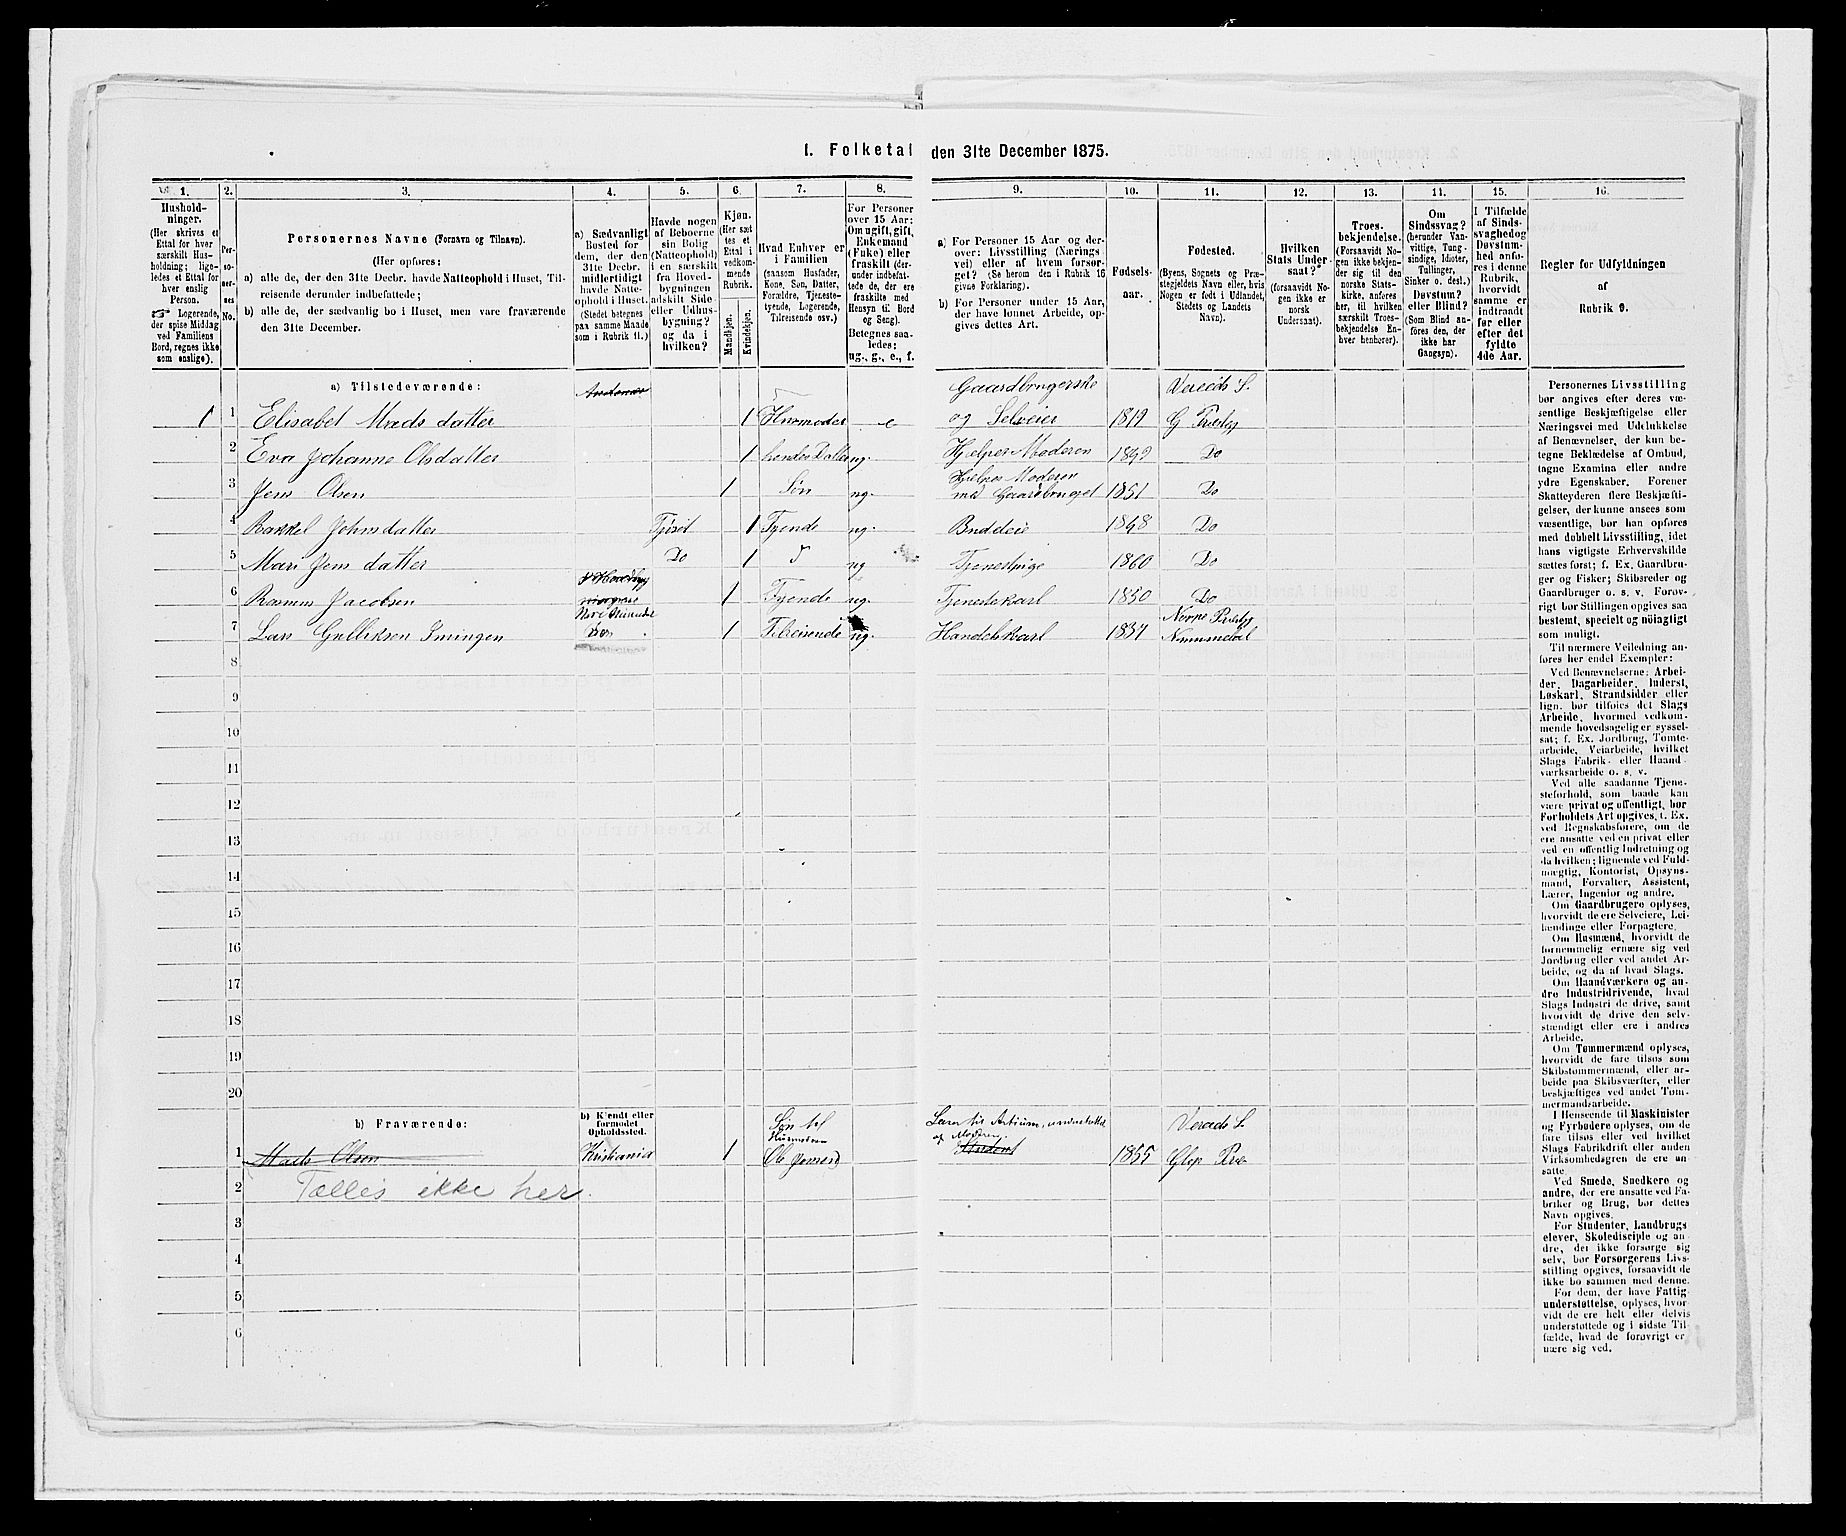 1. Folketal den 31te December 1875.
1.
2.
3.
4.
5.
6.
7.
8.
9.
10.
11.
12.
13.
11.
15.
16.
Hushold-
ninger.
(Her skrives et
Ettal for hver
særskilt Hus-
holdning; lige-
ledes et Ettal for
hver enslig
Person.
Logerende,
der spise Middag
ved Familiens
Bord, regnes ikke
som enslige).
Per-
so-
ner-
nes
No.
Personernes Navne (Fornavn og Tilnavn).
(Her opføres:
a) alle de, der den 31te Decbr. havde Natteophold i Huset, Til-
reisende derunder indbefattede;
b) alle de, der sædvanlig bo i Huset, men vare fraværende
den 31te December.
a) Sædvanligt
Bosted for
dem, der den
31te Decbr.
midlertidigt
havde Natte-
ophold i Huset.
(Stedet betegnes
paa samme Maade
som i Rubrik 11.)
Havde nogen
af Beboerne
sin Bolig
(Natteophold)
i en særskilt
fra Hoved-
bygningen
adskilt Side-
eller Udhus-
bygning?
og da i
hvilken?
Kjøn.
(Her sæt-
tes et
Ettal i
vedkom-
mende
Rubrik.
Mandkjøn.
Kvindekjøn.
Hvad Enhver er
i Familien
(saasom Husfader,
Kone, Søn, Datter,
Forældre, Tjeneste-
tyende, Logerende,
Tilreisende osv.)
For Personer
over 15 Aar:
Om ugift, gift,
Enkemand
(Enke) eller
fraskilt (der-
under indbefat-
tede de, der ere
fraskilte med
Hensyn til Bord
og Seng).
Betegnes saa-
ledes:
ug., g., e., f.
a) For Personer 15 Aar og der-
over: Livsstilling (Nærings-
vei) eller af hvem forsør-
get? (Se herom den i Rubrik 16
givne Forklaring).
b) For Personer under 15 Aar,
der have lønnet Arbeide, op-
gives dettes Art.
Fødsels-
aar.
Fødested.
(Byens, Sognets og Præ-
stegjeldets Navn eller, hvis
Nogen er født i Udlandet,
Stedets og Landets
Navn).
Hvilken
Stats Under-
saat?
(forsaavidt No-
gen ikke er
norsk
Undersaat).
Troes-
bekjendelse.
(Forsaavidt No-
gen ikke bekjen-
der sig til den
norske Stats-
kirke, anføres
her, til hvilken
særskilt Troes-
bekjendelse En-
hver henhører).
Om
Sindssvag?
(herunder Van-
vittige, Tung-
sindige, Idioter,
Tullinger,
Sinker o. desl.)
Døvstum?
eller Blind?
(Som Blind an-
føres den, der
ikke har
Gangsyn).
I Tilfælde
af Sinds-
svaghed og
Døvstum-
hed anfø-
res i denne
Rubrik,
hvorvidt
samme er
indtraadt
før eller
efter det
fyldte
4de Aar.
Regler for Udfyldningen
af
Rubrik 9.
a) Tilstedeværende:
1 1 Elisabet Mads datter 1 Husmoder e Gaardbrugerske og Selveier 1819 Vereids S. G Prestgj
2 Eva Johanne Olsdatter 1 hendes Datter ug. Hjelper Moderen 1849 Do
3 Jens Olsen 1 Søn ug. Hjelper Moderen med Gaardbruget 1851 Do
4 Rakkel Johnsdatter Fjøset 1 Tyende ug. Budeie 1848 Do
5 Mari Jens datter Do 1 ug Tjenestpige 1860 Do
6 Rasmus Jacobsen 1 Tyende ug. Tjenestekarl 1850 Do
7 Lars Gulliksen 1 Tilreisende ug. Handelskarl 1837 Norre Prestgj Nummedal
8
9
10
11
12
13
14
15
16
17
18
19
20
b) Fraværende:
b) Kjendt eller
formodet
Opholdssted.
1 Mads Olsen Kristiania 1 Søn til Husmoderen Moderen. Student 1855 Vereids S. Glop Præ
2 Tælles ikke her.
3
4
5
6
Personernes Livsstilling
bør angives efter deres væ-
sentlige Beskjæftigelse eller
Næringsvei med Udelukkelse
af Benævnelser, der kun be-
tegne Beklædelse af Ombud,
tagne Examina eller andre
ydre Egenskaber. Forener
Skatteyderen flere Beskjæfti-
gelser, der kunne ansees som
væsentlige, bør han opføres
med dobbelt Livsstilling, idet
hans vigtigste Erhvervskilde
sættes først; f. Ex. Gaardbru-
ger og Fisker; Skibsreder og
Gaardbruger o. s. v. Forøv-
rigt bør Stillingen opgives saa
bestemt, specielt og nøiagtigt
som muligt.
Til nærmere Veiledning an-
føres her endel Exempler:
Ved Benævnelserne: Arbei-
der, Dagarbeider, Inderst,
Løskarl, Strandsidder eller
lign. bør tilføies det Slags
Arbeide, hvormed vedkom-
mende hovedsagelig er syssel-
sat; f. Ex. Jordbrug, Tømte-
arbeide, Veiarbeide, hvilket
Slags Fabrik- eller Haand-
værksarbeide o. s. v.
Ved alle saadanne Tjene-
steforhold, som baade kan
være privat og offentligt, bør
Forholdets Art opgives, f. Ex.
ved Regnskabsførere, om de
ere ansatte ved en privat eller
ved en offentlig Indretning og
da hvilken; lignende ved Fuld-
mægtig, Kontorist, Opsyns-
mand, Forvalter, Assistent,
Lærer, Ingeniør og andre.
Om Gaardbrugere oplyses,
hvorvidt de ere Selveiere, Lei-
lændinge eller Forpagtere.
Om Husmænd, hvorvidt de
fornemmelig ernære sig ved
Jordbrug eller ved andet Ar-
beide, og da af hvad Slags.
Om Haandværkere og an-
dre Industridrivende, hvad
Slags Industri de drive, samt
hvorvidt de drive den selv-
stændigt eller ere i andres
Arbeide.
Om Tømmermænd oplyses,
hvorvidt de fare tilsøs som
Skibstømmermænd, eller ar-
beide paa Skibsværfter, eller
beskjæftiges ved andet Tøm-
mermandsarbeide.
I Henseende til Maskinister
og Fyrbødere oplyses, om de
fare tilsøs eller ved hvilket
Slags Fabrikdrift eller anden
Virksomhedsgren de ere an-
satte.
Ved Smede, Snedkere og
andre, der ere ansatte ved Fa-
briker og Brug, bør dettes
Navn opgives.
For Studenter, Landbrugs-
elever, Skoledisciple og an-
dre, der ikke forsørge sig
selv, bør Forsørgerens Livs-
stilling opgives, forsaavidt de
ikke bo sammen med denne.
For dem, der have Fattig-
understøttelse, oplyses, hvor-
vidt de ere helt eller delvis
understøttede og i sidste Til-
fælde, hvad de forøvrigt er-
nære sig ved.